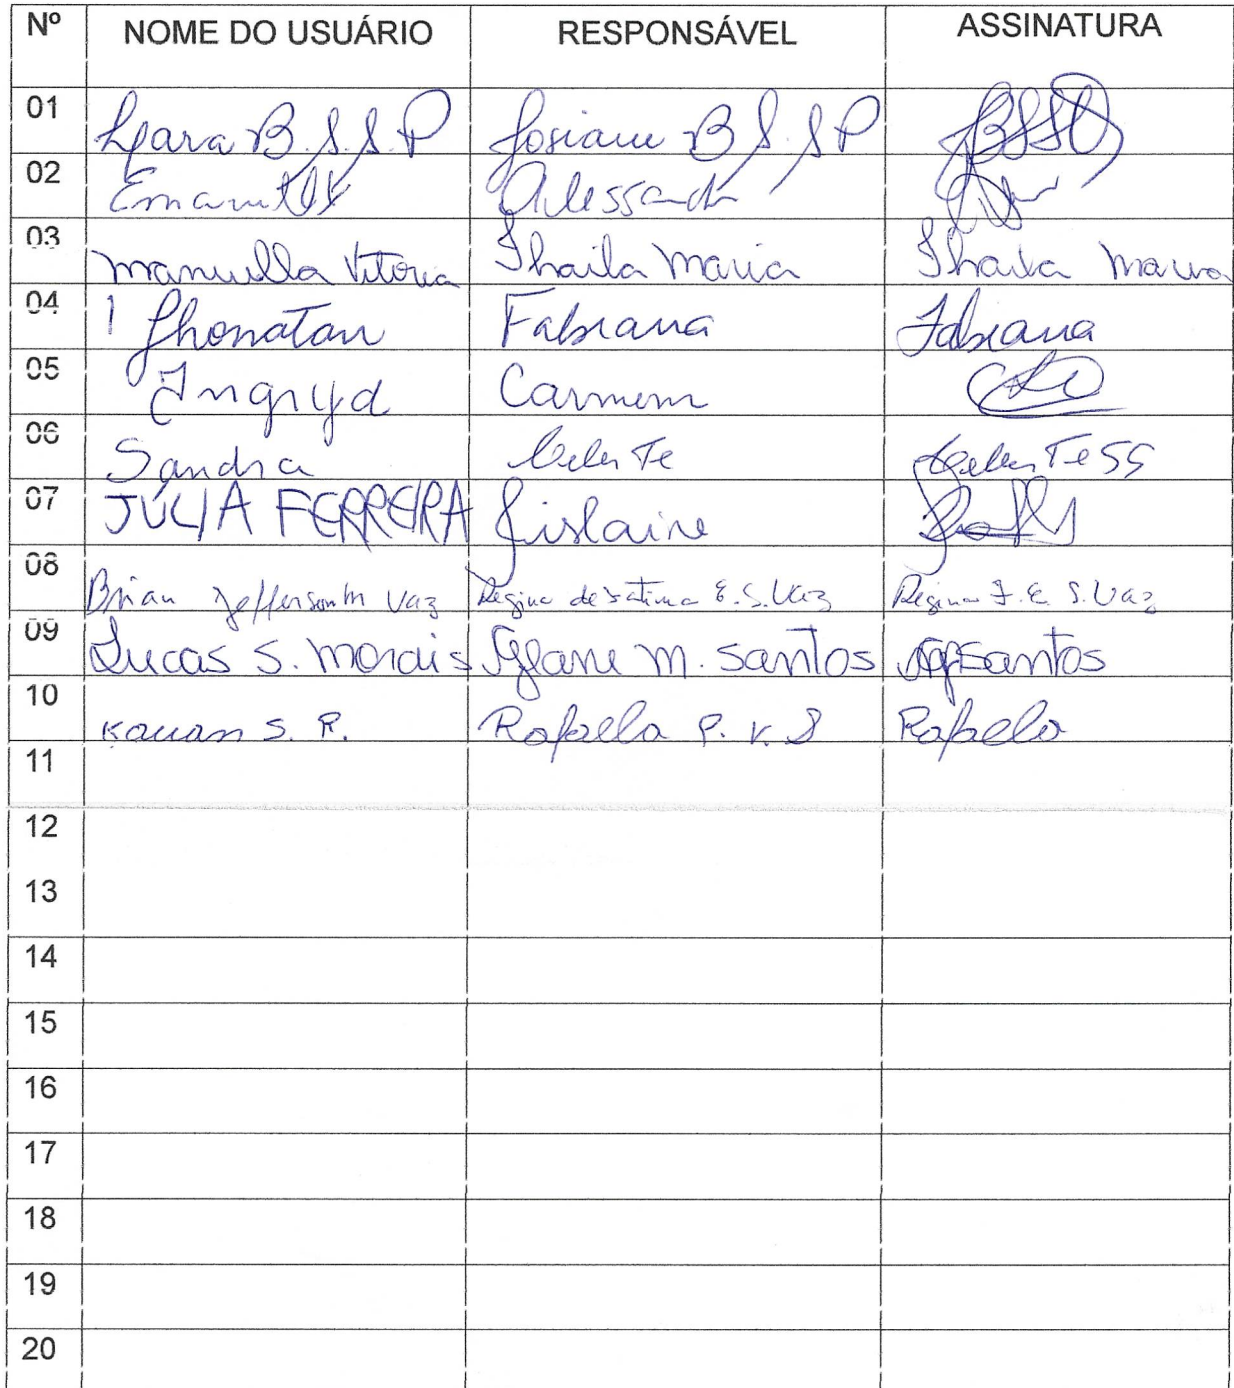 Nº NOME DO USUÁRIO RESPONSÁVEL ASSINATURA
01 Lyara B. S. S. P Josiane B S. S P
02 Alessandr
03 Manuella Vitoria Thaila Maria Thaila Maria
04 Jhonatan Fabiana Fabiana
05 Ingryd Carmem
06 Sandra Celeste Celeste SS
07 JÚLIA FERREIRA Gislaine
08 Brian Jefferson M Vaz Regina de Fatima E. S. Vaz Regina F. E. S. Vaz
09 Lucas S. Morais M. Santos Santos
10 Kauan S. R. Rafaella P. V. S Rafaella
11
12
13
14
15
16
17
18
19
20